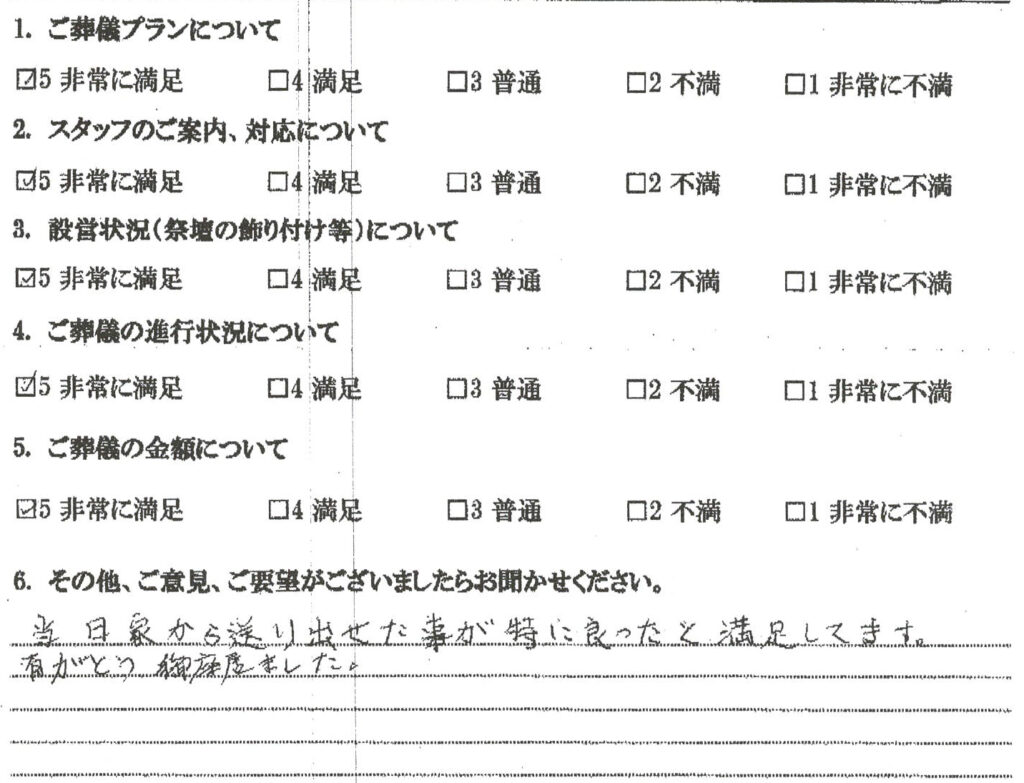 1. ご葬儀プランについて
☑5 非常に満足 □4 満足 □3 普通 □2 不満 □1 非常に不満
2. スタッフのご案内、対応について
☑5 非常に満足 □4 満足 □3 普通 □2 不満 □1 非常に不満
3. 設営状況(祭壇の飾り付け等)について
☑5 非常に満足 □4 満足 □3 普通 □2 不満 □1 非常に不満
4. ご葬儀の進行状況について
☑5 非常に満足 □4 満足 □3 普通 □2 不満 □1 非常に不満
5. ご葬儀の金額について
☑5 非常に満足 □4 満足 □3 普通 □2 不満 □1 非常に不満
6. その他、ご意見、ご要望がございましたらお聞かせください。
当日家から送り出せた事が特に良ったと満足してます。
有がとう御座居ました。